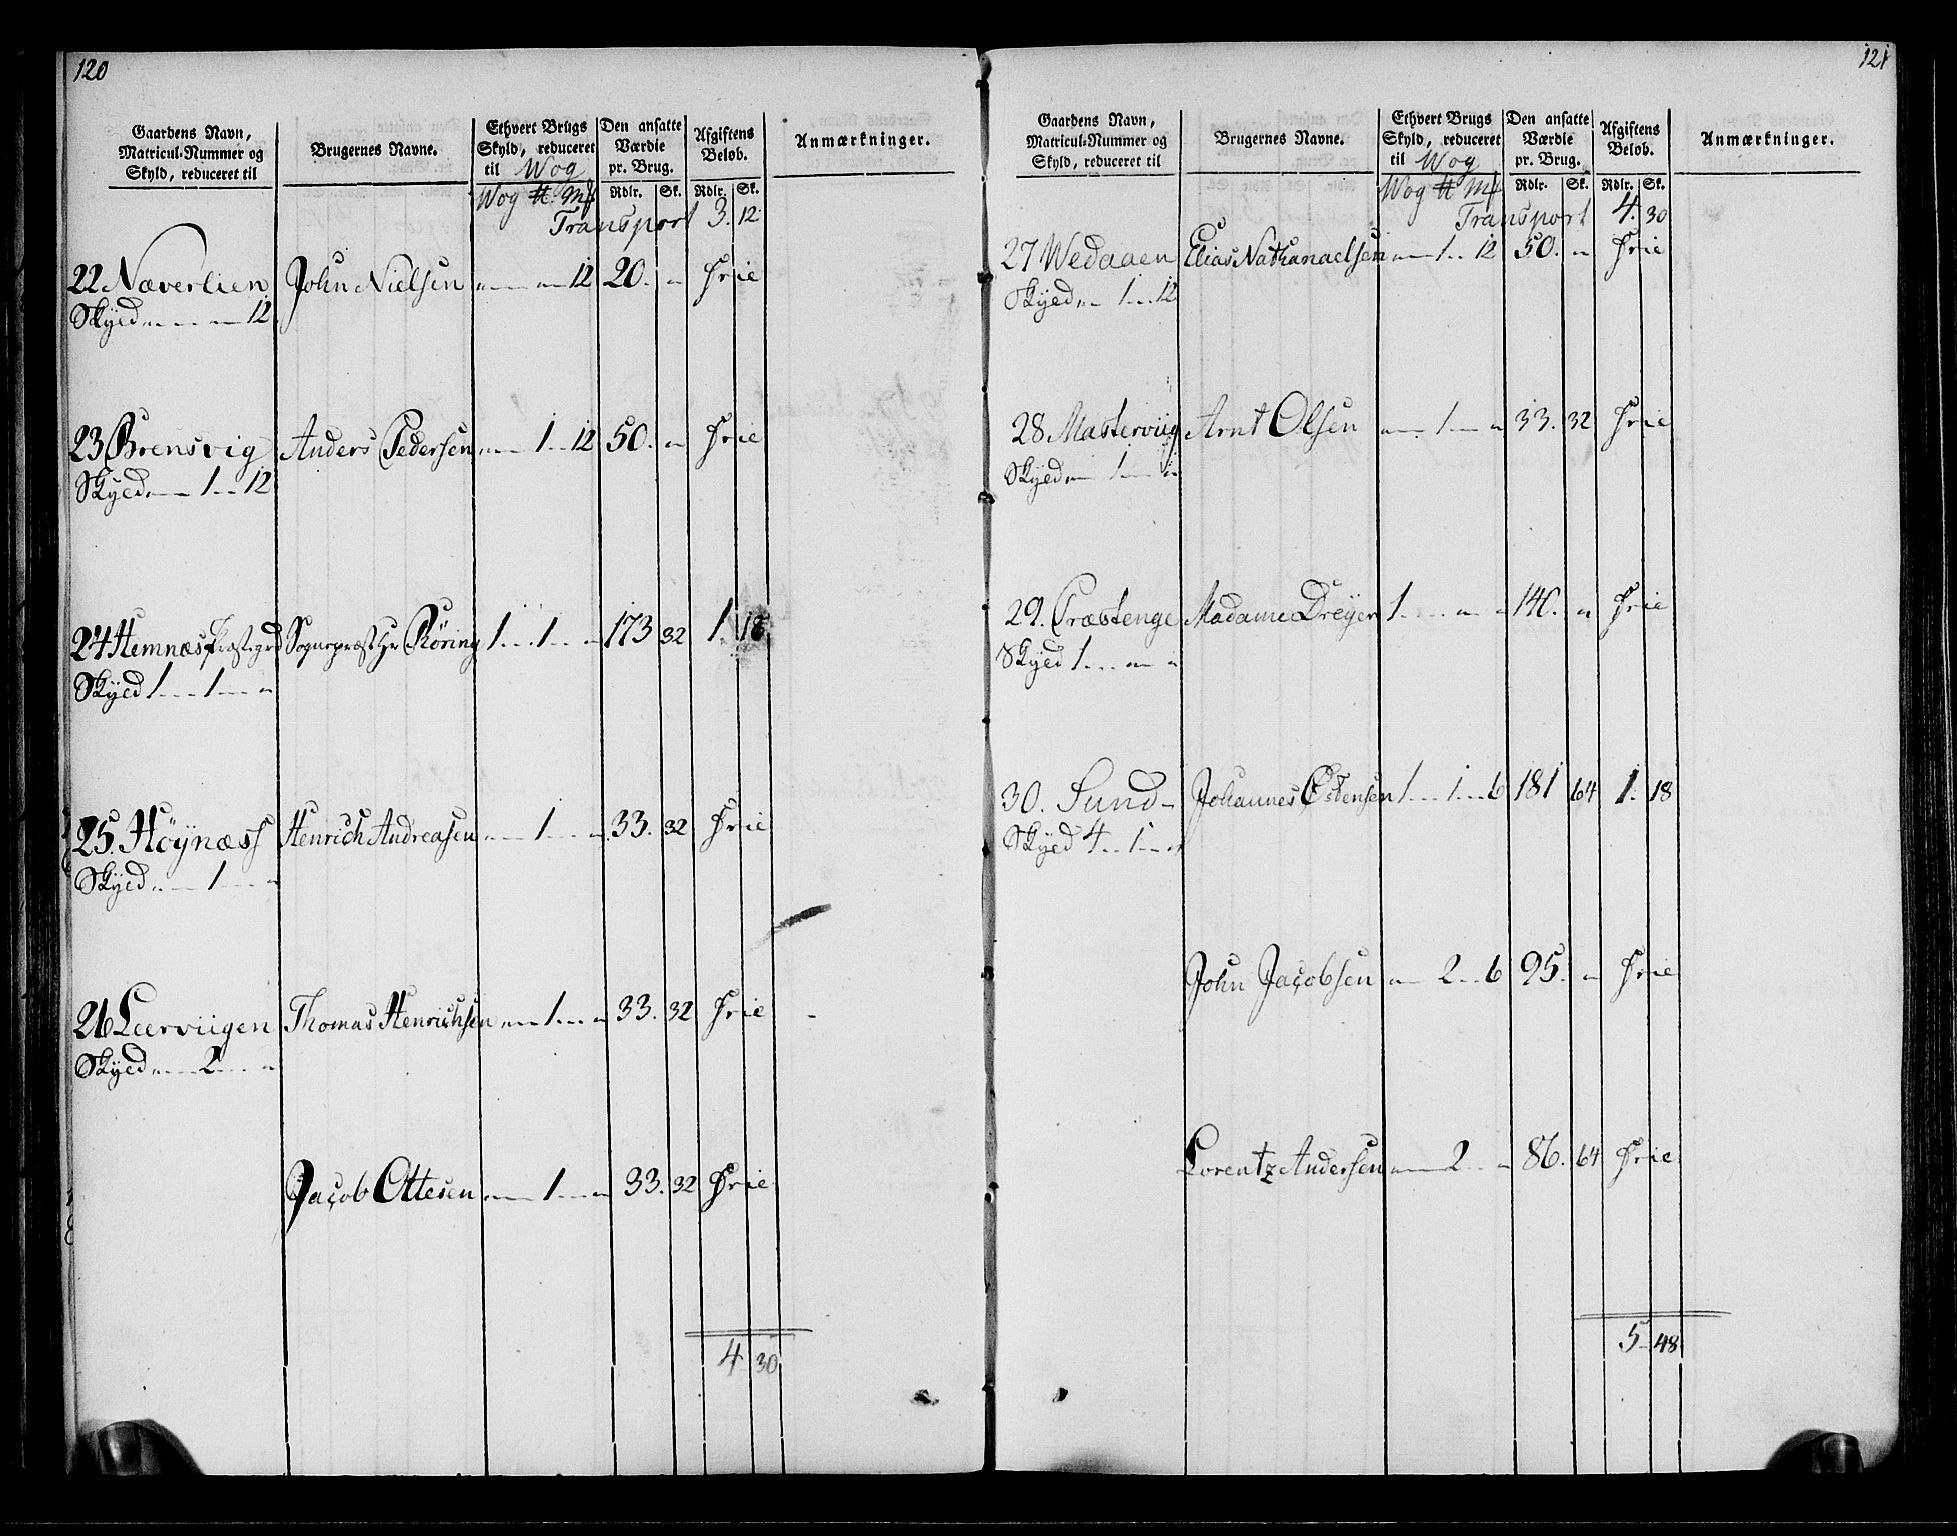 120
Gaardens Navn, Matricul-Nummer og Skyld, reduceret til | Brugernes Navne. | Ethvert Brugs Skyld, reduceret til Wog | Den ansatte Værdie pr. Brug. | Afgiftens Beløb. | Anmærkninger.
Wog ℔ Mk | Rdlr. | Sk. | Rdlr. | Sk.
Transport 3. 12
22 Næverlien John Nielsen " — " 12 20. " Frie
Skyld " — — 12
23 Brensvig Anders Pedersen " — 1 .. 12 50. " Frie
Skyld " — 1 .. 12
24 Hemnæs Præstegrd Sognepræst Hr Röring 1 .. 1 — " 173 32 1. 18
Skyld 1 — 1 — "
25. Höÿnæss Henrich Andreasen " — 1 — " 33. 32 Frie
Skyld " — 1 — "
26 Leerviigen Thomas Henrichsen " — 1 — " 33. 32 Frie
Skyld " — 2 — "
Jacob Ottesen " — 1 — " 33. 32 Frie
4 30
121
Gaardens Navn, Matricul-Nummer og Skyld, reduceret til | Brugernes Navne. | Ethvert Brugs Skyld, reduceret til Wog | Den ansatte Værdie pr. Brug. | Afgiftens Beløb. | Anmærkninger.
Wog ℔ Mk | Rdlr. | Sk. | Rdlr. | Sk.
Transport 4. 30
27 Wedaaen Elias Nathanaelsen " — 1 .. 12 50. " Frie
Skyld " — 1 .. 12
28 Masterviig Arnt Olsen " — 1 — " 33. 32 Frie
Skyld " — 1 — "
29. Præstenge Madame Dreÿer 1 — " — " 140. " Frie
Skyld 1 — " — "
30. Sund - Johannes Östensen 1 — 1 — 6 181 64 1. 18
Skyld 4 .. 1 — "
John Jacobsen " — 2 .. 6 95. " Frie
Lorentz Andersen " — 2 .. " 86. 64 Frie
5 48